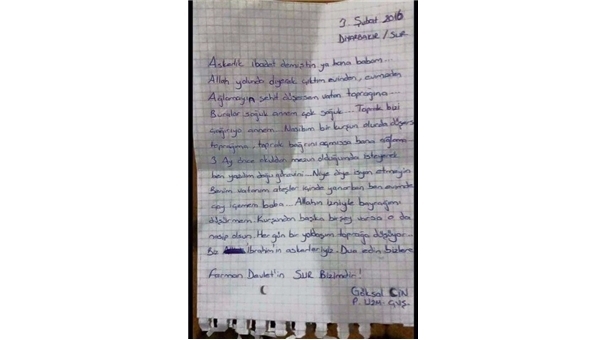 3 Şubat 2016
DİYARBAKIR / SUR
Askerlik ibadet demiştin ya bana babam...
Allah yolunda diyerek çıktım evimden, evimizden
Ağlamayın şehit düşersem vatan toprağına...
Buralar soğuk annem çok soğuk... Toprak bizi
çağırıyo annem... Nasibim bir kurşun olurda düşersem
toprağıma, toprak bağrını açmışsa bana ağlama!
3 Ay önce okuldan mezun olduğumda isteyerek
ben yazdım doğu görevini... Niye diye isyan etmeyin
Benim vatanım ateşler içinde yanarken ben evimde
çay içemem baba... Allahın izniyle bayrağımı
düşürmem. Kurşundan başka birşey varsa o da
nasip olsun. Her gün bir yoldaşım toprağa düşüyor...
Biz İbrahim'in askerleriyiz. Dua edin bizlere
Ferman Devlet'in SUR Bizimdir!
Göksal CİN
P. UZM. ÇVŞ.